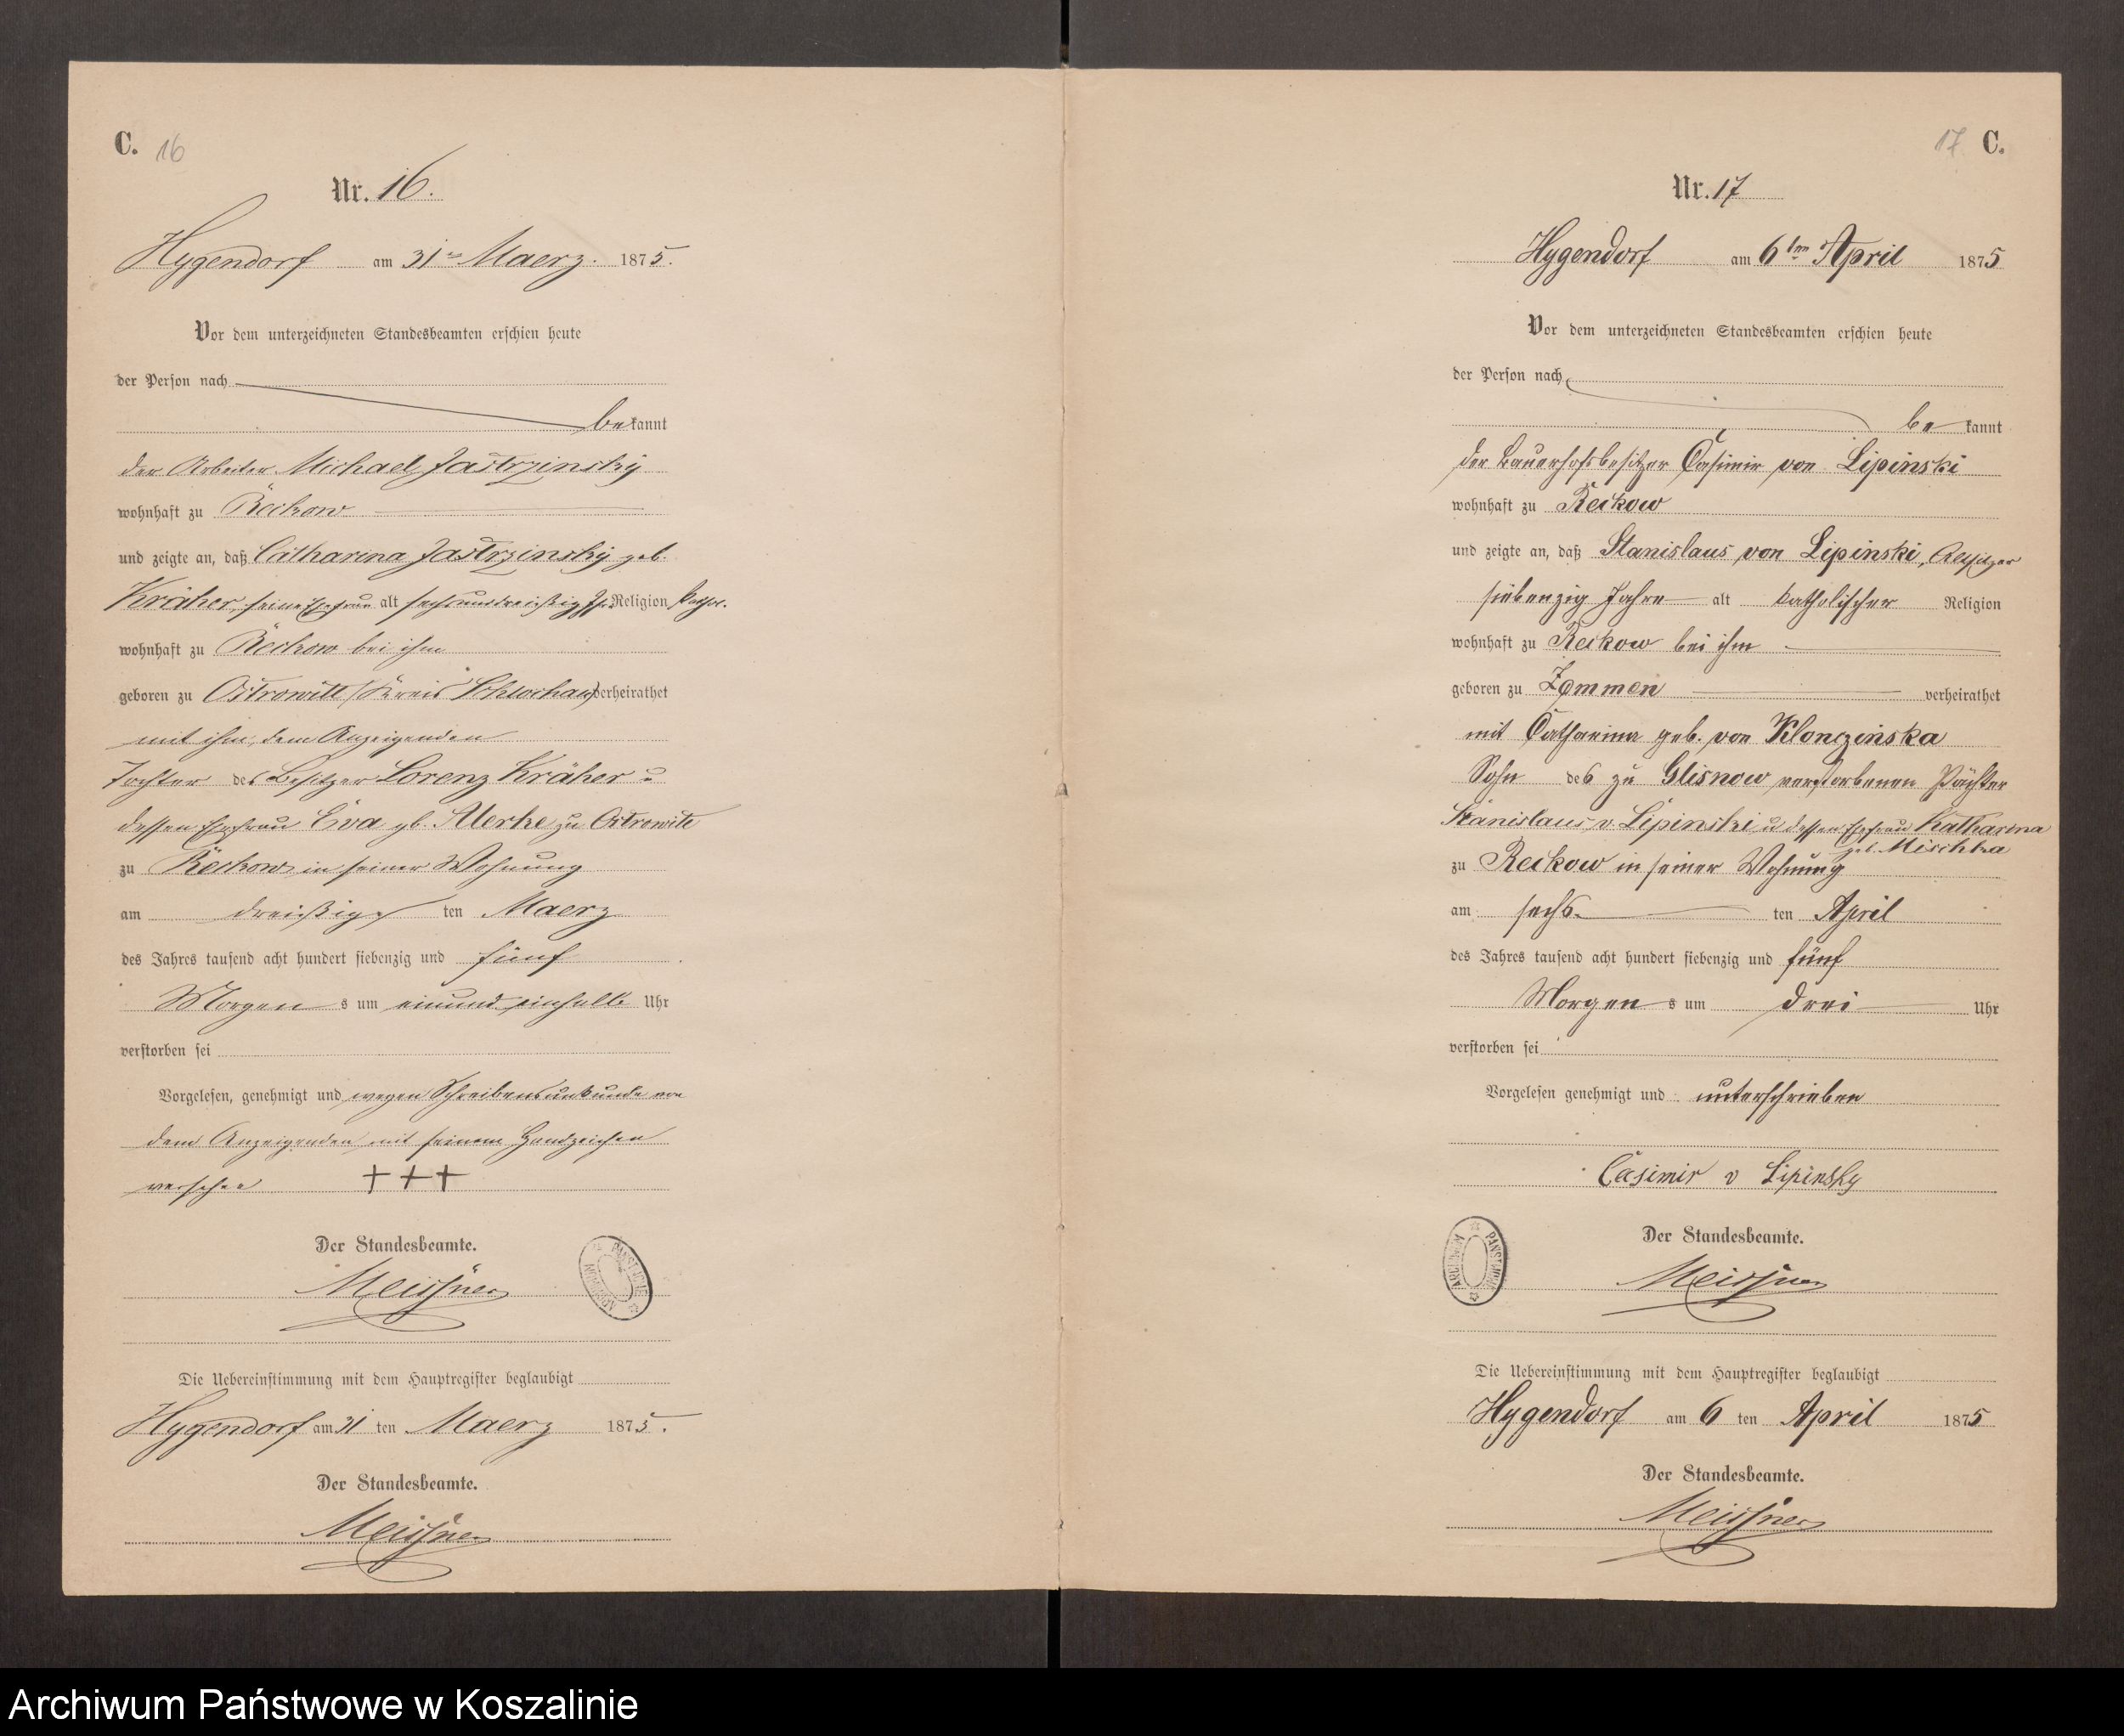 C. 16
Nr. 16.
Hygendorf am 31ten Maerz. 1875.
Vor dem unterzeichneten Standesbeamten erschien heute
der Person nach
bekannt
der Arbeiter Michael Jastrzinsky
wohnhaft zu Reckow
und zeigte an, daß Catharina Jastrzinsky geb.
Kräher, seine Ehefrau alt sechsunddreißig J. Religion kathol.
wohnhaft zu Reckow bei ihm
geboren zu Ostrowitt (Kreis Schlochau) verheirathet
mit ihm, dem Anzeigenden
Tochter des Besitzer Lorenz Kräher u
dessen Ehefrau Eva gb. zu Ostrowite
zu Reckow in seiner Wohnung
am dreißigs ten Maerz
des Jahres tausend acht hundert siebenzig und fünf
Morgens um einundeinhalb Uhr
verstorben sei
Vorgelesen, genehmigt und wegen Schreibensunkunde von
dem Anzeigenden mit seinem Handzeichen
versehen +++
Der Standesbeamte.
Meissner
ARCHIWUM PAŃSTWOWE
Die Uebereinstimmung mit dem Hauptregister beglaubigt
Hygendorf am 31 ten Maerz 1875.
Der Standesbeamte.
Meissner
17 C.
Nr. 17
Hygendorf am 6ten April 1875
Vor dem unterzeichneten Standesbeamten erschien heute
der Person nach
be kannt
der Bauerhofsbesitzer Casimir von Lipinski
wohnhaft zu Reckow
und zeigte an, daß Stanislaus von Lipinski, Altsitzer
siebenzig Jahre alt katholischer Religion
wohnhaft zu Reckow bei ihm
geboren zu Zemmen verheirathet
mit Catharina geb. von Klonczinska
Sohn des zu Glisnow verstorbenen Pächter
Stanislaus v. Lipinski u dessen Ehefrau Katharina
geb. Mischka
zu Reckow in seiner Wohnung
am sechs ten April
des Jahres tausend acht hundert siebenzig und fünf
Morgen s um drei Uhr
verstorben sei
Vorgelesen genehmigt und unterschrieben
Casimir v Lipinsky
Der Standesbeamte.
Meissner
ARCHIWUM PAŃSTWOWE
Die Uebereinstimmung mit dem Hauptregister beglaubigt
Hygendorf am 6 ten April 1875
Der Standesbeamte.
Meissner
Archiwum Państwowe w Koszalinie